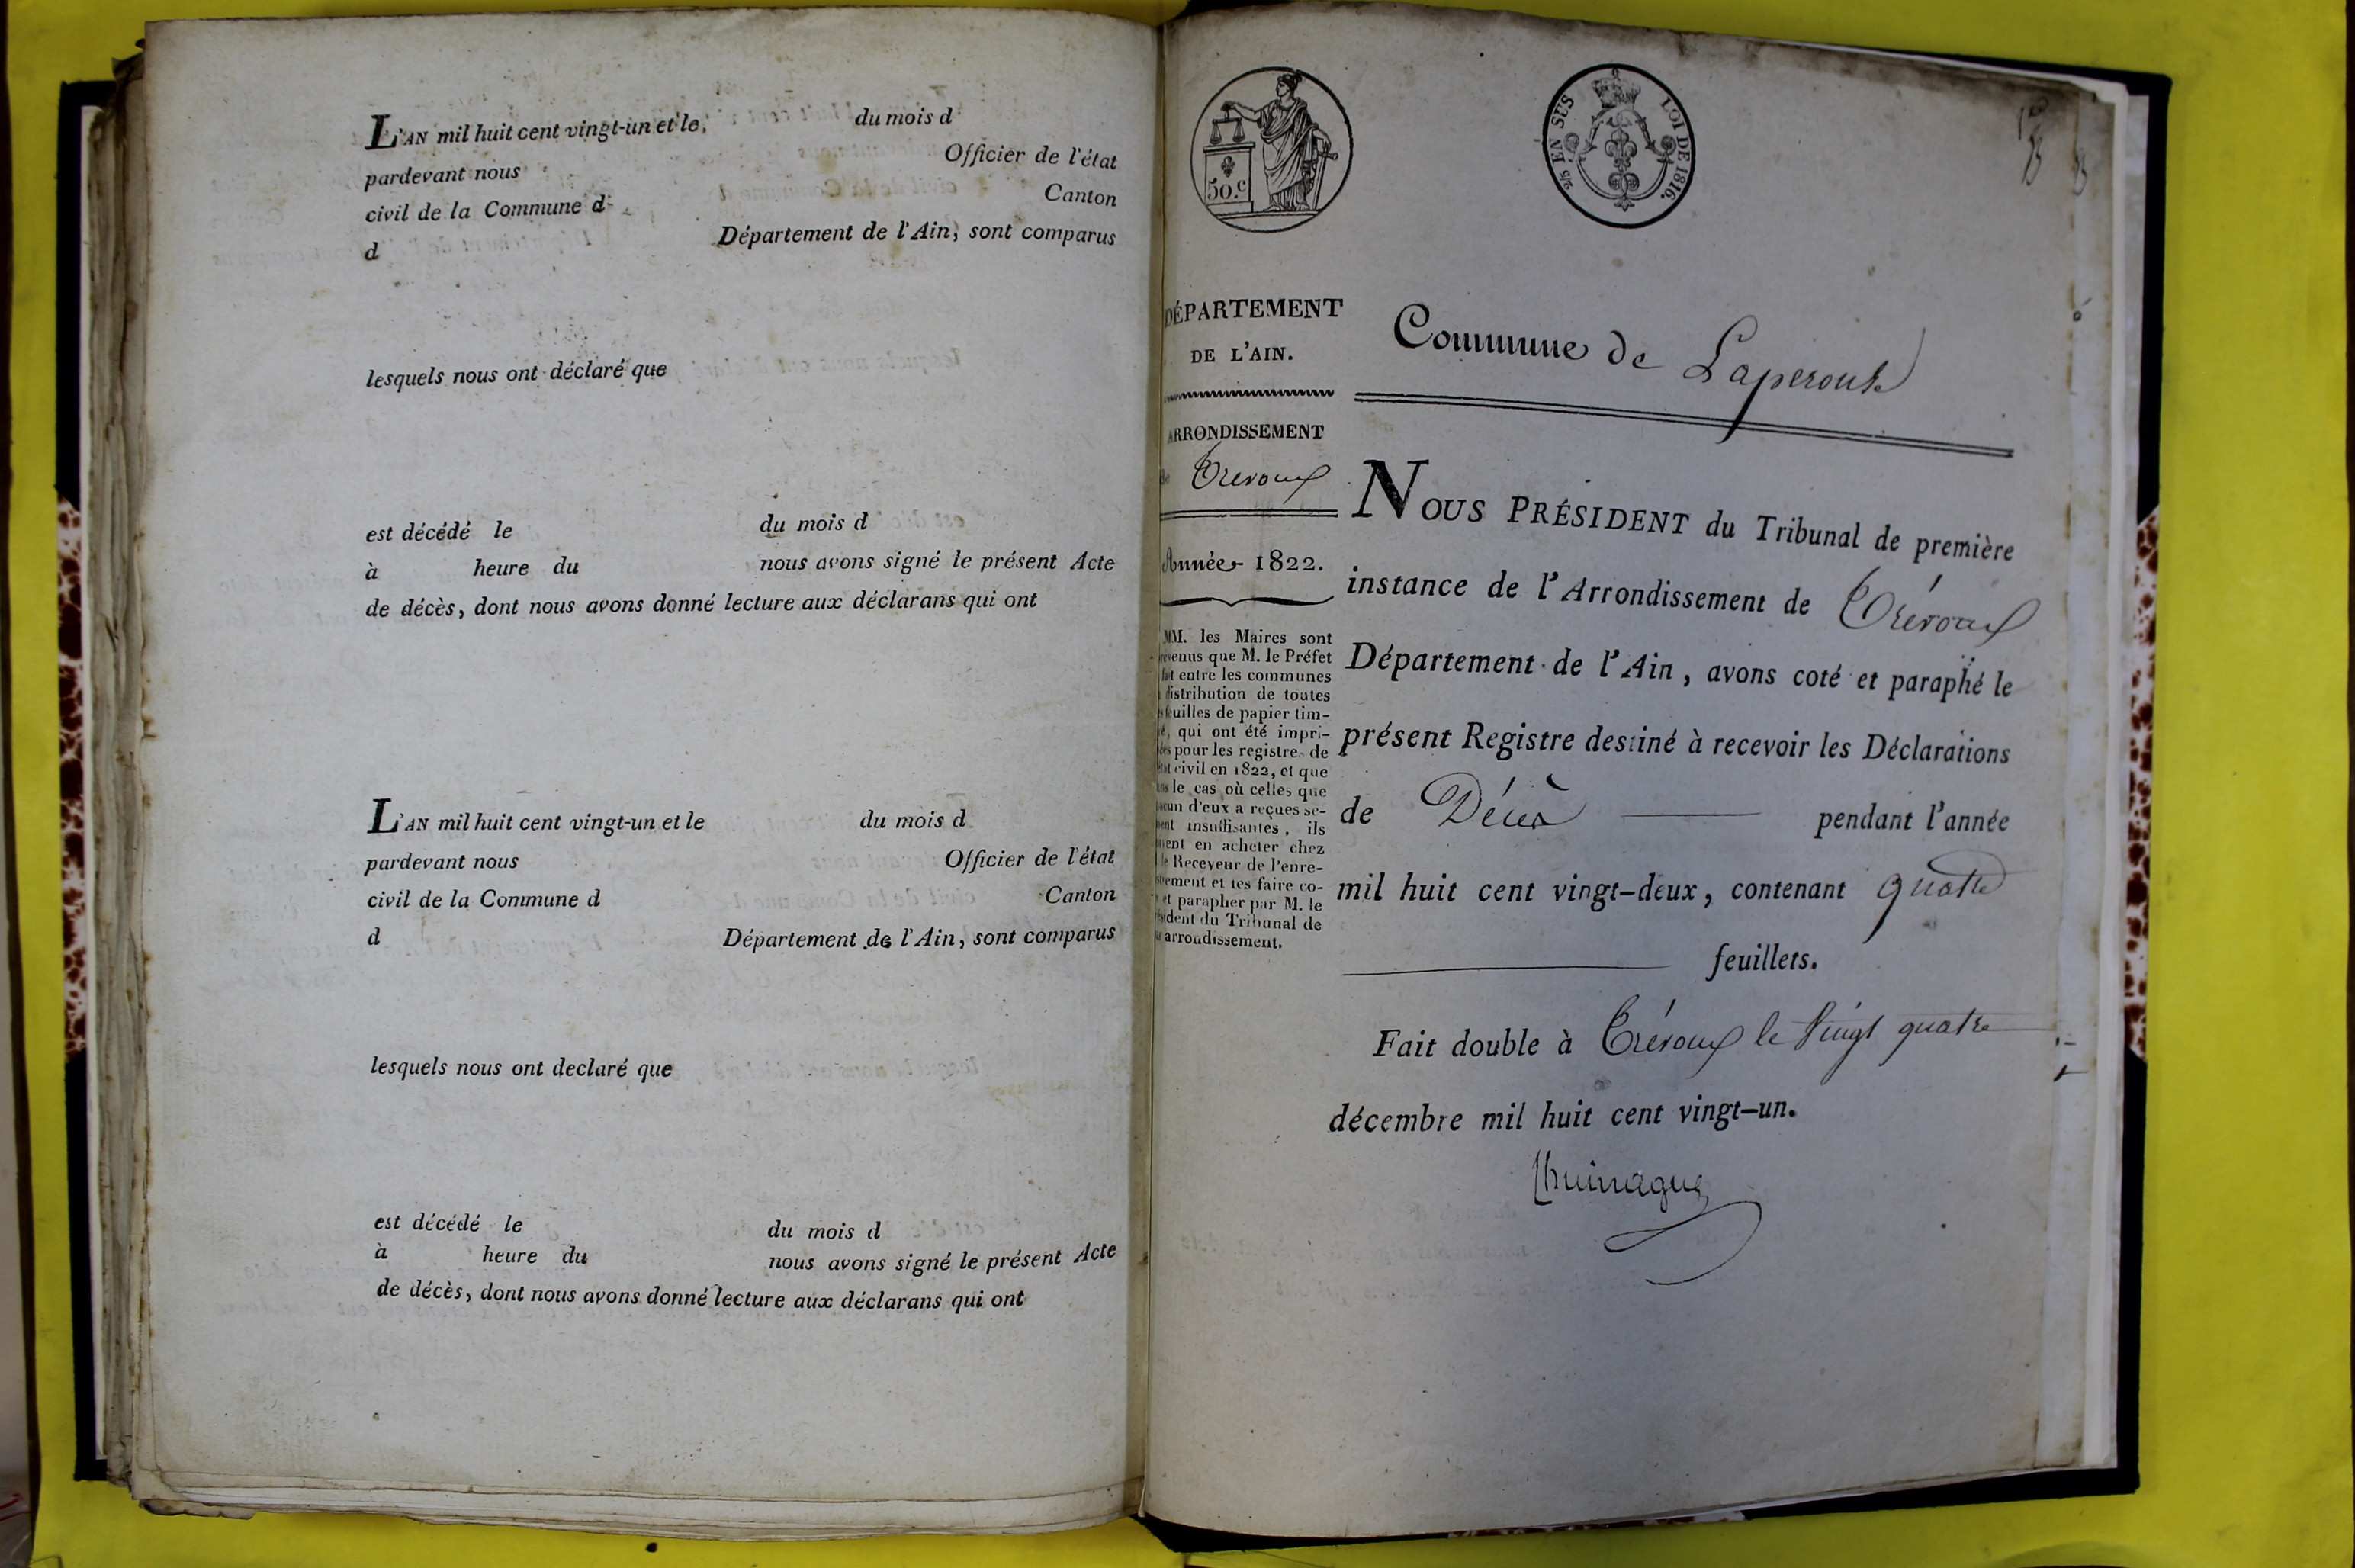 L'AN mil huit cent vingt-un et le, du mois d
pardevant nous Officier de l'état
civil de la Commune d Canton
d Département de l'Ain, sont comparus
lesquels nous ont déclaré que
est décédé le du mois d
à heure du nous avons signé le présent Acte
de décès, dont nous avons donné lecture aux déclarans qui ont
L'AN mil huit cent vingt-un et le du mois d
pardevant nous Officier de l'état
civil de la Commune d Canton
d Département de l'Ain, sont comparus
lesquels nous ont declaré que
est décédé le du mois d
à heure du nous avons signé le présent Acte
de décès, dont nous avons donné lecture aux déclarans qui ont
50.c
2/5 EN SUS LOI DE 1816.
DÉPARTEMENT
DE L'AIN.
ARRONDISSEMENT
de Trevoux
Année 1822.
MM. les Maires sont
que M. le Préfet
entre les communes
distribution de toutes
feuilles de papier tim-
qui ont été impri-
pour les registres de
civil en 1822, et que
le cas où celles que
d'eux a reçues se-
insuffisantes, ils
en acheter chez
le Receveur de l'enre-
et les faire co-
et parapher par M. le
du Tribunal de
arrondissement.
Commune de Laperouse
NOUS PRÉSIDENT du Tribunal de première
instance de l'Arrondissement de Trévoux
Département de l'Ain, avons coté et paraphé le
présent Registre destiné à recevoir les Déclarations
de Décès pendant l'année
mil huit cent vingt-deux, contenant quatre
feuillets.
Fait double à Trévoux le Vingt quatre
décembre mil huit cent vingt-un.